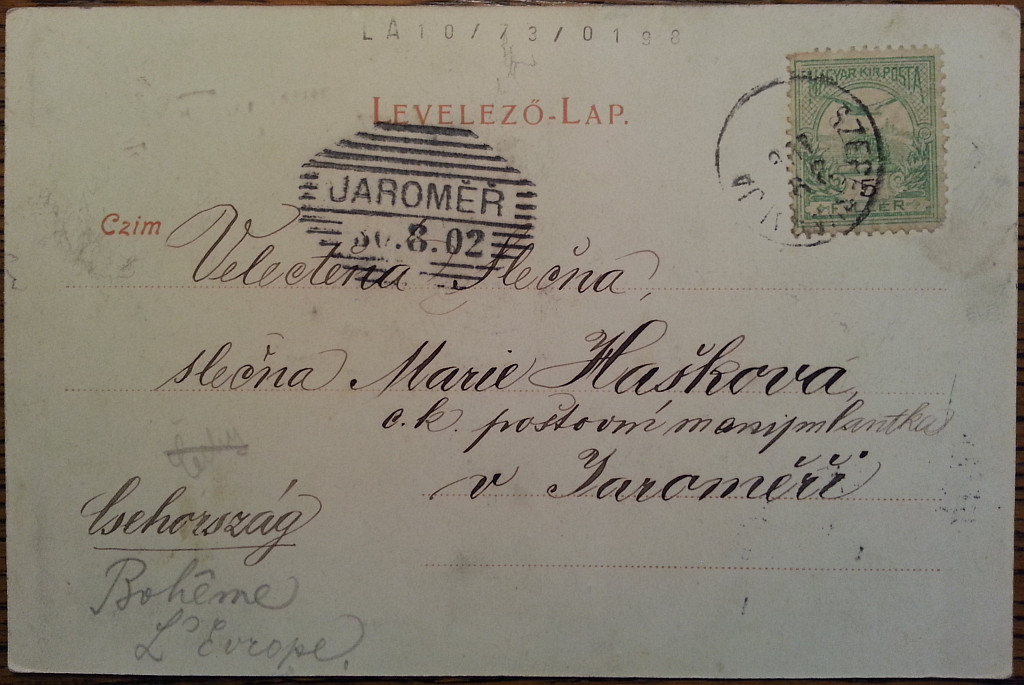 LA10/73/0198
LEVELEZŐ-LAP.
MAGYAR KIR. POSTA
5
JAROMĚŘ
30.8.02
Czim
Velectěna Slečna,
slečna Marie Hašková,
c.k. poštovní manipulantka
v Jaroměři
Csehország
Bohême
L'Evrope.